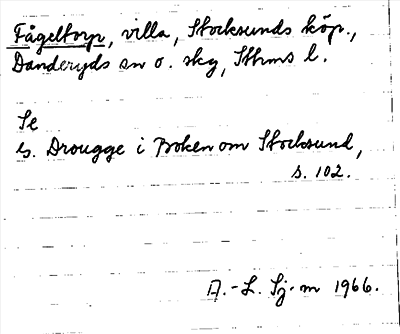 Fågeltorp, villa, Stocksunds köp.,
Danderyds sn o. skg, Sthms l.
Se
G. Drougge i Boken om Stocksund,
s. 102.
A.-L. Sj-m 1966.